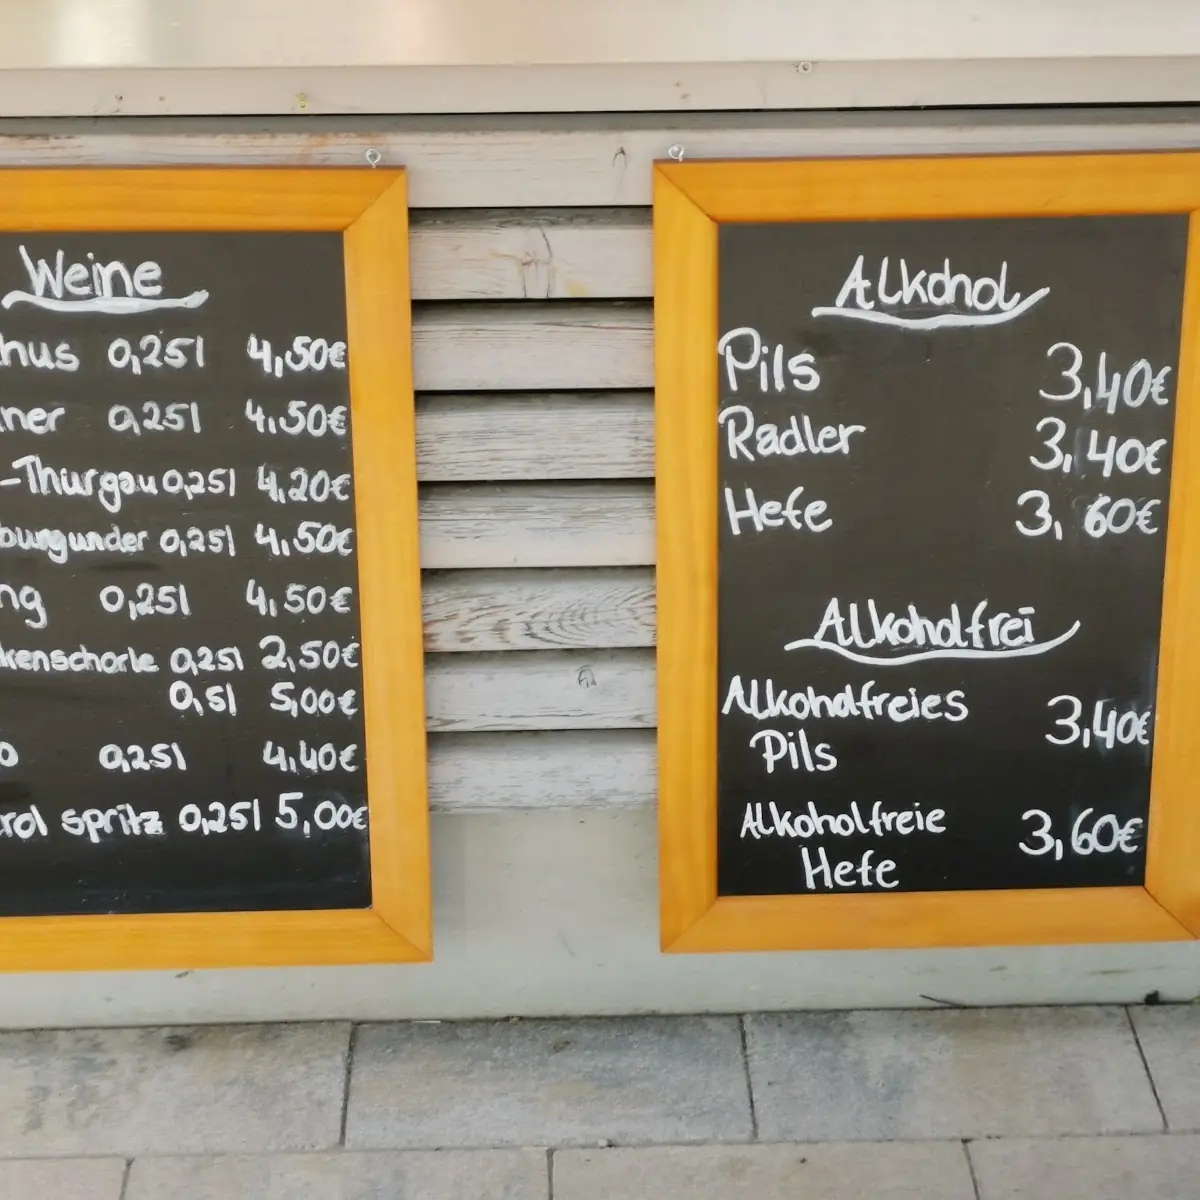 Weine
hus 0,25l 4,50€
ner 0,25l 4,50€
-Thurgau 0,25l 4,20€
burgunder 0,25l 4,50€
ng 0,25l 4,50€
kenschorle 0,25l 2,50€
0,5l 5,00€
o 0,25l 4,40€
rol spritz 0,25l 5,00€
Alkohol
Pils 3,40€
Radler 3,40€
Hefe 3,60€
Alkoholfrei
Alkoholfreies
Pils 3,40€
Alkoholfreie
Hefe 3,60€